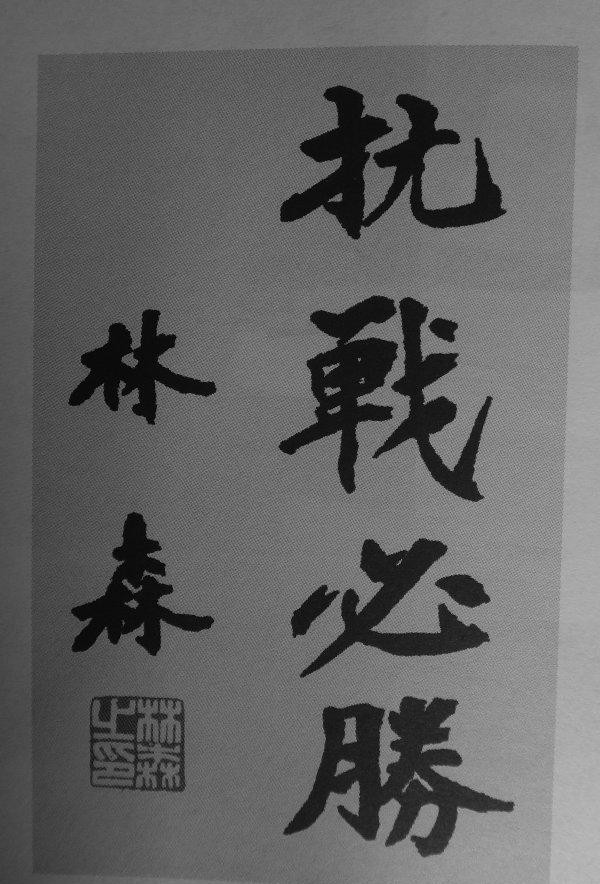 抗戰必勝
林森
林森之印